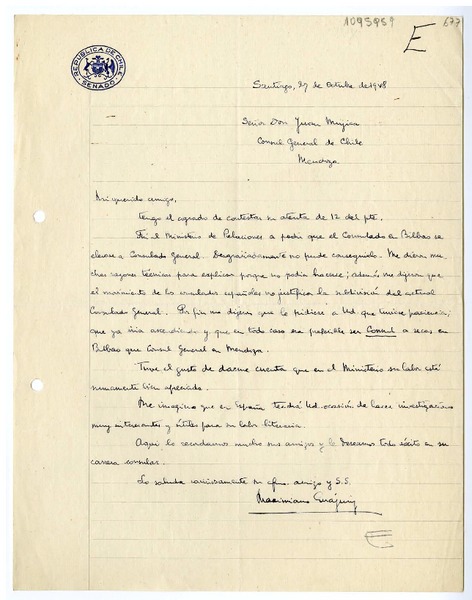 1095959
E
677
REPUBLICA DE CHILE
SENADO
Santiago, 27 de Octubre de 1948
Señor Don Juan Mujica
Consul General de Chile
Mendoza
Mi querido amigo,
Tengo el agrado de contestar su atenta de 12 del pte.
Fui al Ministerio de Relaciones a pedir que el Consulado en Bilbao se
elevara a Consulado General. Desgraciadamente no pude conseguirlo. Me dieron mu-
chas razones técnicas para explicar porque no podía hacerse; además me dijeron que
el movimiento de los consulados españoles no justifica la subdivisión del actual
Consulado General. Por fin me dijeron que le pidiera a Ud que tuviese paciencia;
que ya iria ascendiendo y que en todo caso era preferible ser Consul a secas en
Bilbao que Consul General en Mendoza.
Tuve el gusto de darme cuenta que en el Ministerio su labor está
sumamente bien apreciada.
Me imagino que en España tendrá Ud. ocasión de hacer investigaciones
muy interesantes y útiles para su labor literaria.
Aquí lo recordamos mucho sus amigos y le deseamos todo éxito en su
carrera consular.
Lo saluda cariñosamente su afmo. amigo y S.S.
Maximiano Errázuriz